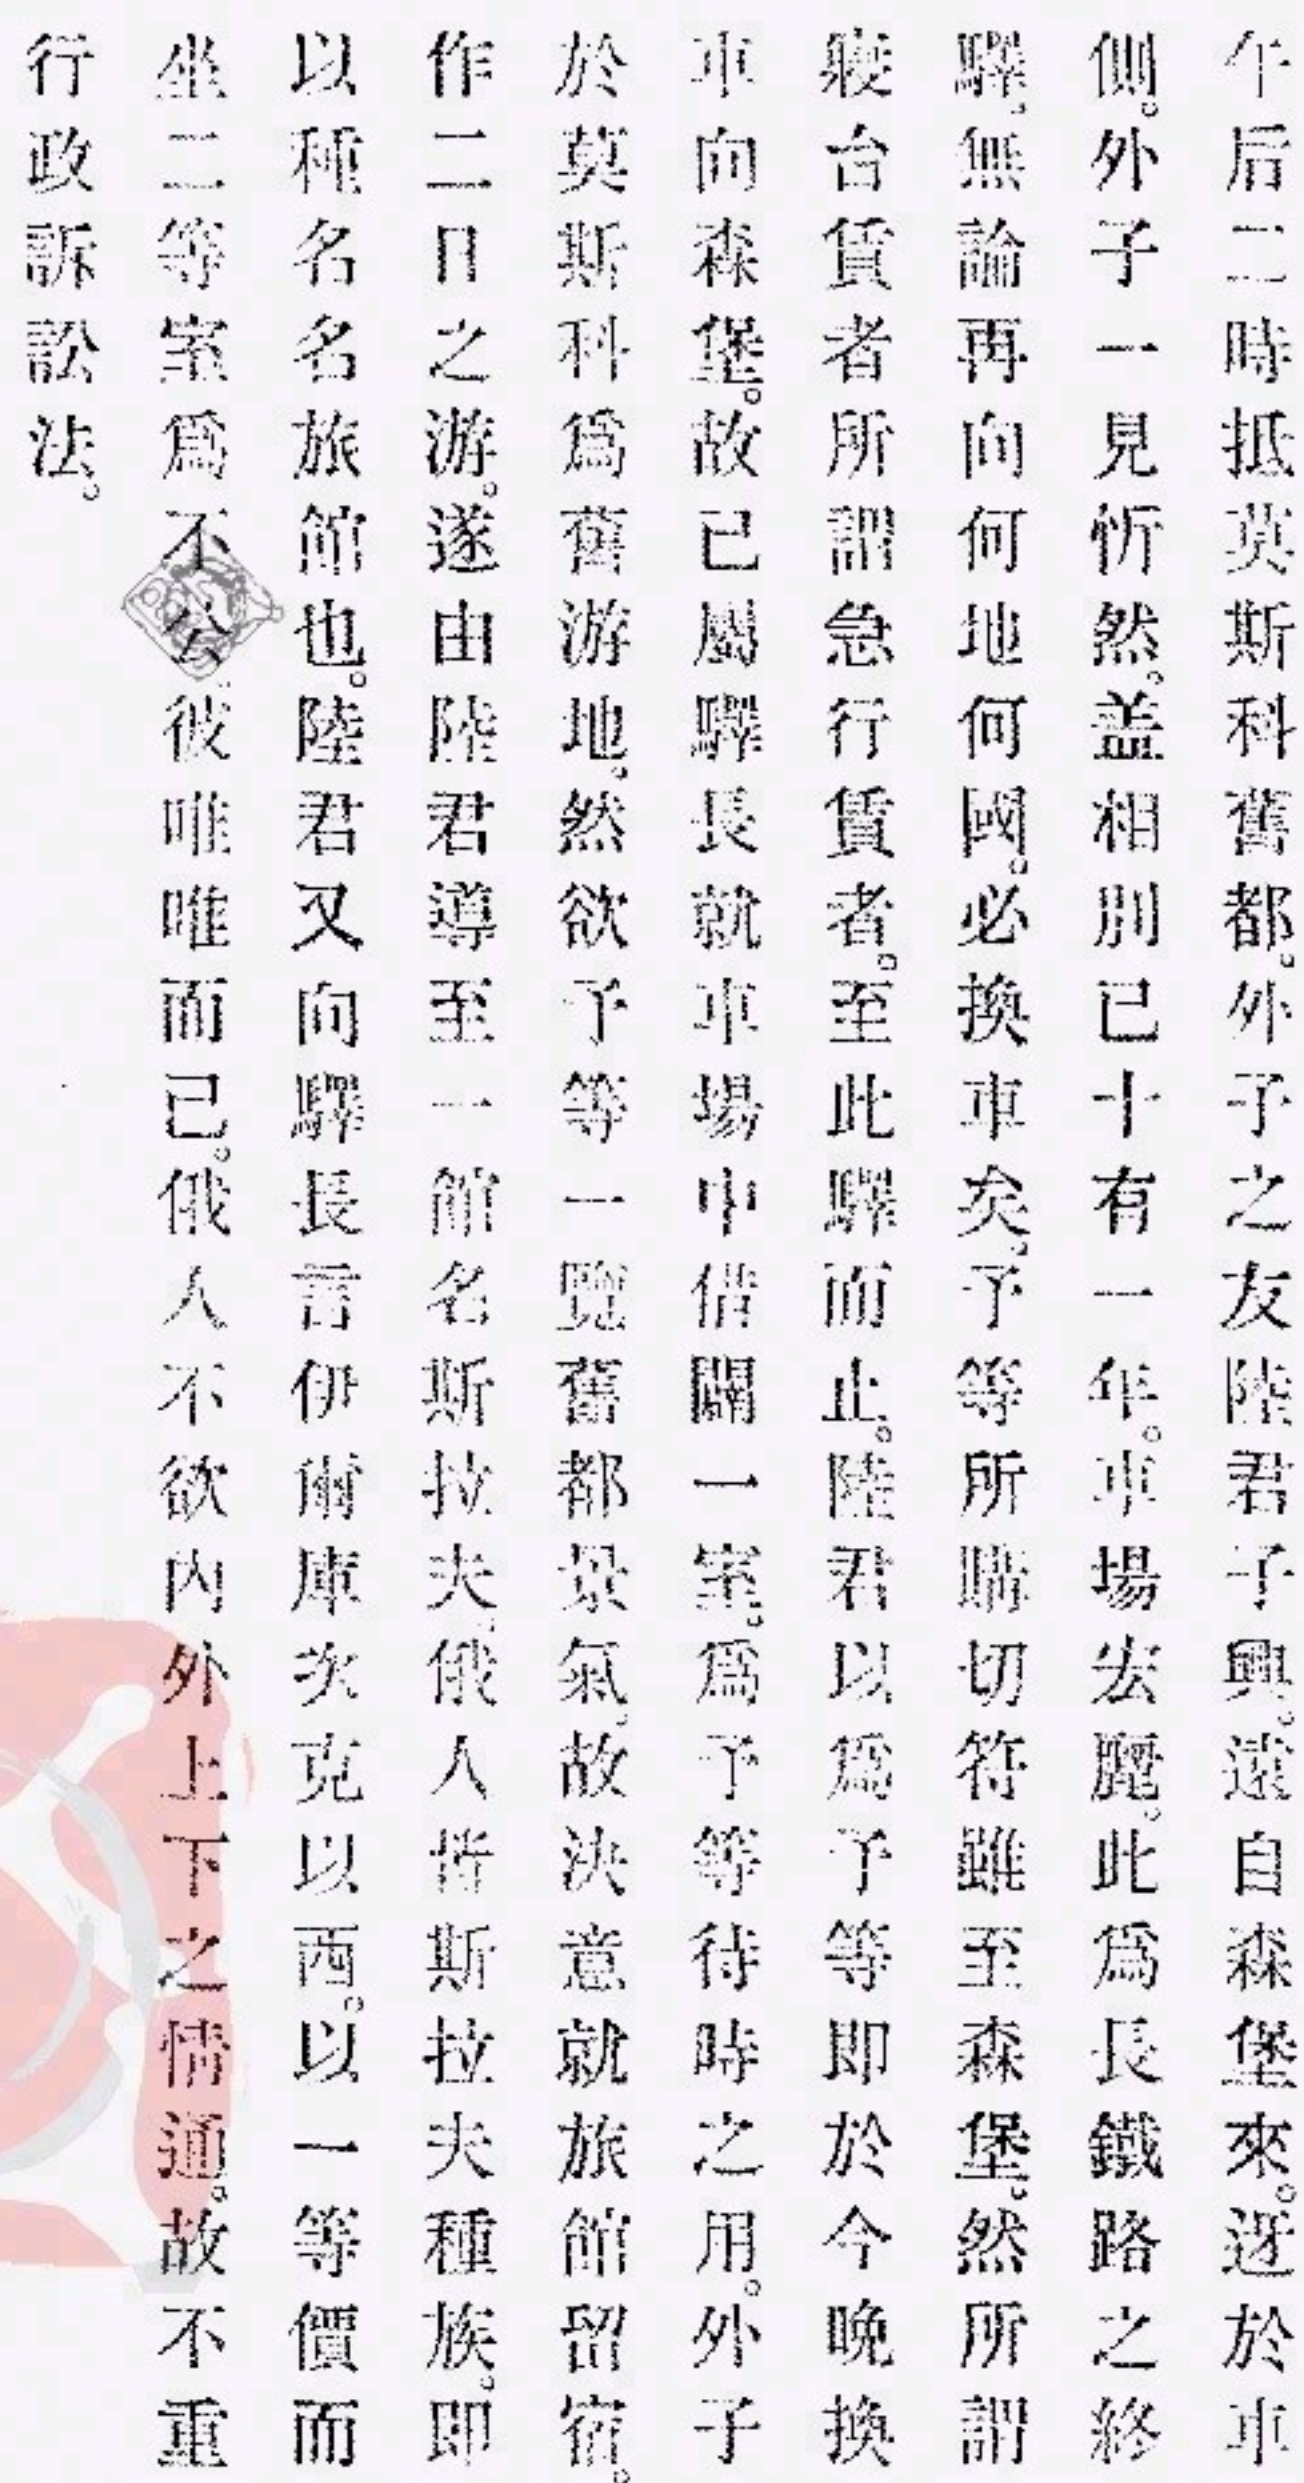 午后二時抵莫斯科舊都。外子之友陸君子興。遠自森堡來。迓於車
側。外子一見忻然。盖相別已十有一年。車場宏麗。此爲長鐵路之終
驛。無論再向何地何國。必換車矣。予等所購切符雖至森堡。然所謂
寢台賃者所謂急行賃者。至此驛而止。陸君以爲予等即於今晚換
車向森堡。故已屬驛長就車場中借闢一室。爲予等待時之用。外子
於莫斯科爲舊游地。然欲予等一覽舊都景氣。故決意就旅館留宿。
作二日之游。遂由陸君導至一館名斯拉夫。俄人皆斯拉夫種族。即
以種名名旅館也。陸君又向驛長言伊爾庫次克以西。以一等價而
坐二等室爲不公。彼唯唯而已。俄人不欲內外上下之情通。故不重
行政訴訟法。